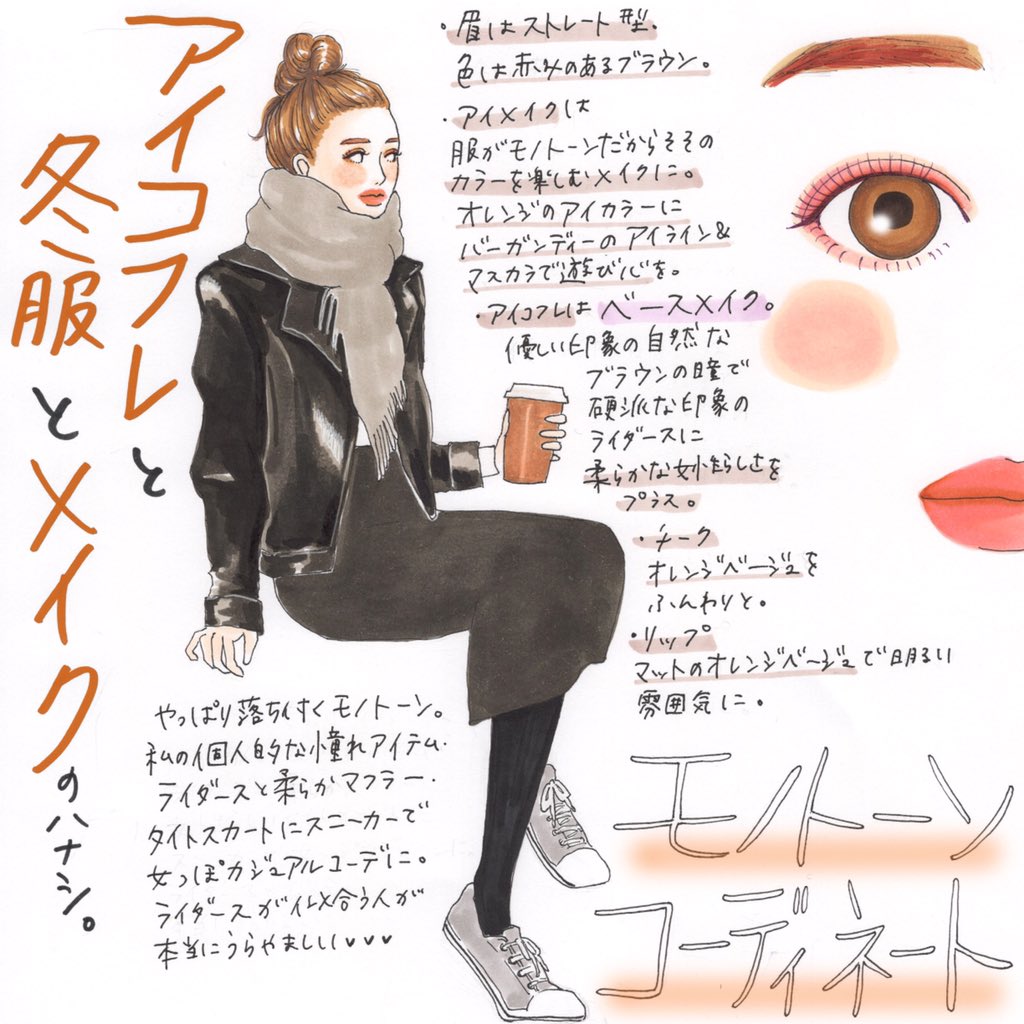 アイコフレと
冬服とメイクのハナシ。
・眉はストレート型。
色は赤みのあるブラウン。
・アイメイクは
服がモノトーンだからこその
カラーを楽しむメイクに。
オレンジのアイカラーに
バーガンディーのアイライン&
マスカラで遊び心を。
・アイコフレはベースメイク。
優しい印象の自然な
ブラウンの瞳で
硬派な印象の
ライダースに
柔らかな女らしさを
プラス。
・チーク
オレンジベージュを
ふんわりと。
・リップ
マットのオレンジベージュで明るい
雰囲気に。
やっぱり落ち付くモノトーン。
私の個人的な憧れアイテム・
ライダースと柔らかマフラー・
タイトスカートにスニーカーで
女っぽカジュアルコーデに。
ライダースが似合う人が
本当にうらやましい♥♥♥
モノトーン
コーディネート